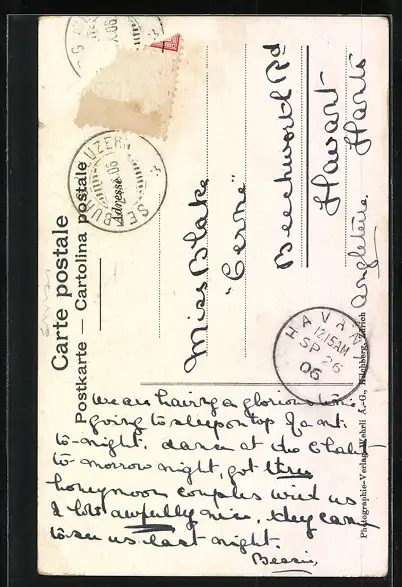 Carte postale
Postkarte — Cartolina postale
Adresse
SEEBURG LUZERN
Miss Blake
"Cerne"
Beechworth Rd
Havant
Hants
Angleterre
HAVANT
12.15AM
SP 26
06
Photographie-Verlag Wehrli A.-G., Kilchberg, Zürich
We are having a glorious time:
going to sleep on top of a mt.
to-night. dance at the
to-morrow night, got three
honeymoon couples with us
& lots awfully nice. They came
to see us last night.